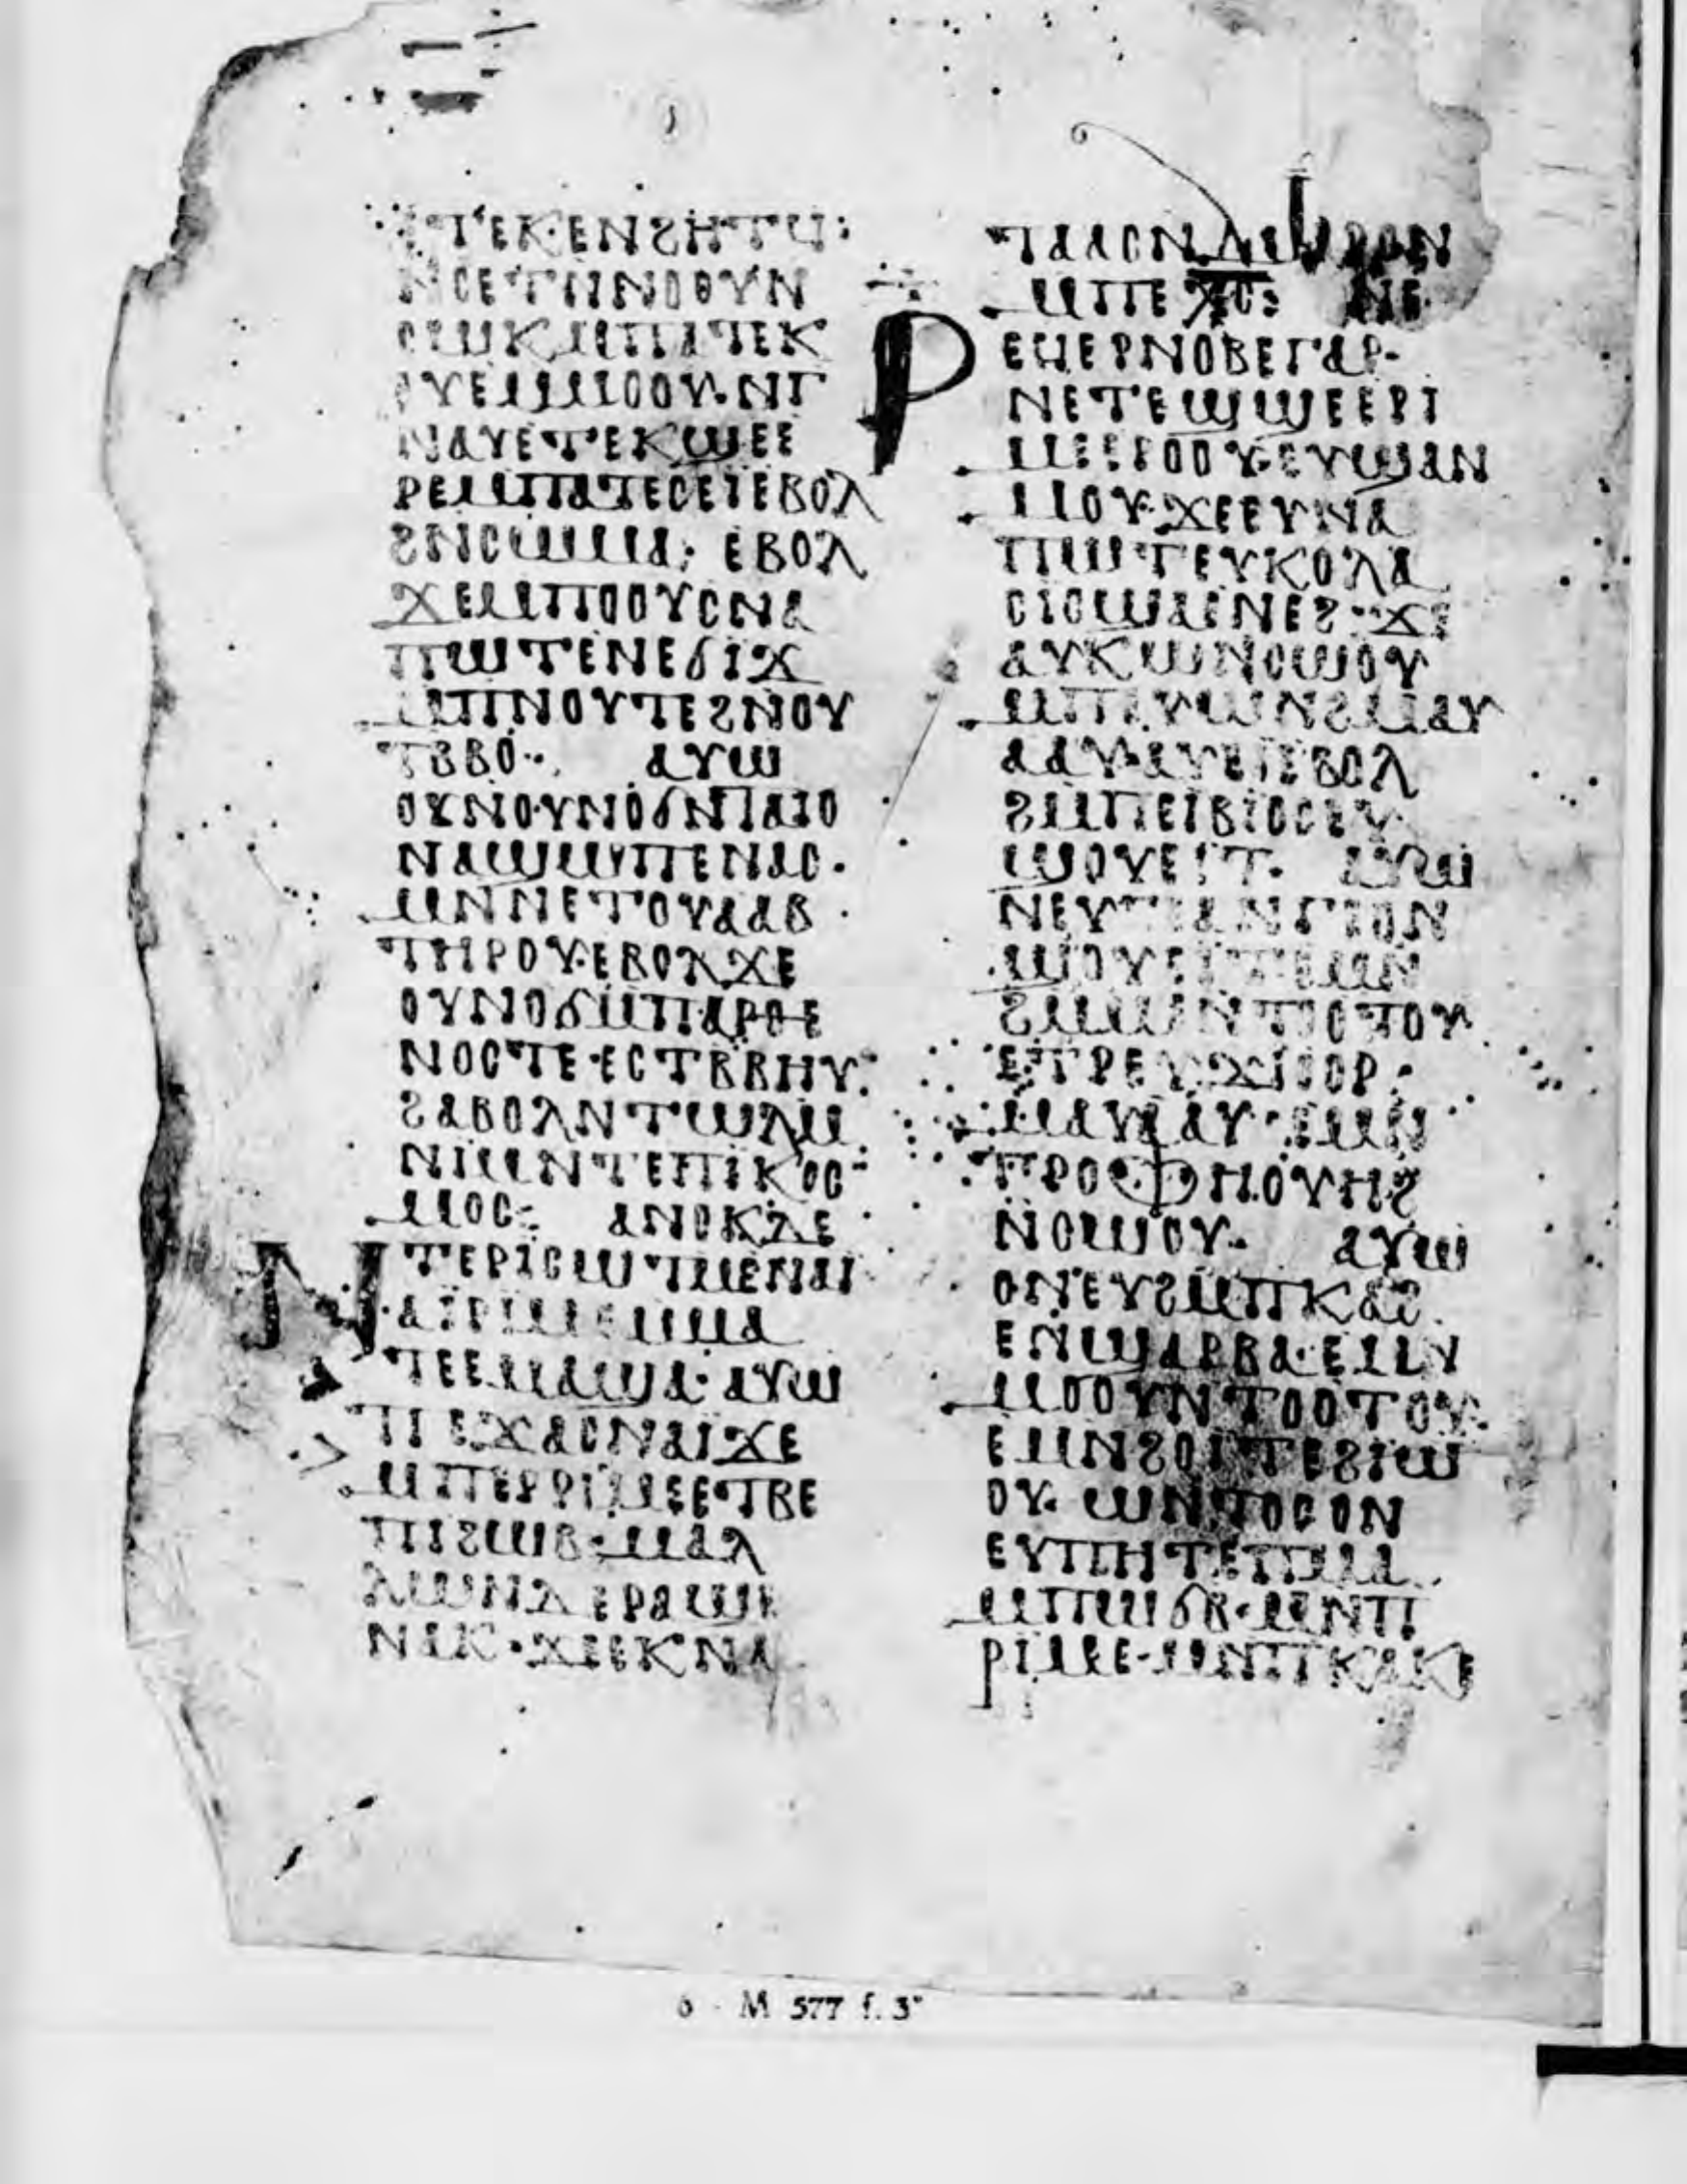 ⲧⲉⲕⲉⲛϩⲏⲧϥ:
ⲛⲥⲉⲧⲙⲛⲟⲟⲩⲛ
ⲥⲱⲕ ⲙⲡⲁⲧⲉⲕ
ⲟⲩⲉⲙⲙⲟⲟⲩ·ⲛⲅ
ⲛⲁⲩⲉⲧⲉⲕϣⲉⲉ
ⲣⲉⲙⲡⲁⲧⲉⲥⲉⲓⲉⲃⲟⲗ
ϩⲛⲥⲱⲙⲁ: ⲉⲃⲟⲗ
ϫⲉⲙⲡⲟⲟⲩⲥⲛⲁ
ⲡⲱⲧⲉⲛⲉϭⲓϫ
ⲙⲡⲛⲟⲩⲧⲉϩⲛⲟⲩ
ⲧⲃⲃⲟ· ⲁⲩⲱ
ⲟⲩⲛⲟⲩⲛⲟϭⲛⲧⲁⲓⲟ
ⲛⲁϣⲱⲡⲉⲛⲁⲥ·
ⲙⲛⲛⲉⲧⲟⲩⲁⲁⲃ·
ⲧⲏⲣⲟⲩ·ⲉⲃⲟⲗϫⲉ
ⲟⲩⲛⲟϭⲙⲡⲁⲣⲑⲉ
ⲛⲟⲥⲧⲉ·ⲉⲥⲧⲃⲃⲏⲩ:
ϩⲁⲃⲟⲗⲛⲧⲱⲗⲙ
ⲛⲓⲙⲛⲧⲉⲡⲓⲕⲟⲥ
ⲙⲟⲥ: ⲁⲛⲟⲕⲇⲉ
ⲛⲧⲉⲣⲓⲥⲱⲧⲙⲉⲛⲁⲓ
ⲁⲓⲣⲓⲙⲉⲙⲙⲁ
ⲧⲉⲉⲙⲁϣⲁ·ⲁⲩⲱ
ⲡⲉϫⲁⲥⲛⲁⲓϫⲉ
ⲙⲡⲉⲣⲣⲓⲙⲉⲉⲧⲃⲉ
ⲡⲓϩⲱⲃ·ⲙⲁⲗ
ⲗⲱⲛⲇⲉⲣⲁϣⲉ
ⲛⲁⲕ·ϫⲉⲉⲕⲛⲁ
ⲧⲁⲁⲥⲛⲇⲱⲣⲟⲛ
ⲙⲡⲉⲭⲥ: ⲛⲉ
ⲣⲉϥⲉⲣⲛⲟⲃⲉⲅⲁⲣ·
ⲛⲉⲧⲉϣϣⲉⲉⲣⲓ
ⲙⲉⲉⲣⲟⲟⲩ·ⲉⲩϣⲁⲛ
ⲙⲟⲩ·ϫⲉⲉⲩⲛⲁ
ⲡⲱⲧⲉⲩⲕⲟⲗⲁ
ⲥⲓⲥϣⲁⲉⲛⲉϩ·ϫⲉ
ⲁⲩⲕⲱⲛⲥⲱⲟⲩ
ⲙⲡⲉⲩⲱⲛϩⲙⲁⲩ
ⲁⲁⲩ·ⲁⲩⲉⲓⲉⲃⲟⲗ
ϩⲙⲡⲉⲓⲃⲓⲟⲥⲉⲩ
ϣⲟⲩⲉⲓⲧ· ⲁⲩⲱ
ⲛⲉⲩⲧⲁⲙⲓⲟⲛ
ϣⲟⲩⲉⲓⲧ·ⲉⲙⲛ
ϩⲙⲙⲉⲛⲧⲟⲟⲧⲟⲩ
ⲉⲧⲣⲉⲩϫⲓⲟⲟⲣ·
ⲙⲁⲩⲁⲩ·ⲉⲙⲛ
ⲧⲣⲟⲫⲏⲟⲩⲏϩ
ⲛⲥⲱⲟⲩ· ⲁⲩⲱ
ⲟⲛⲉⲩϩⲙⲡⲕⲁϩ
ⲉⲛϣⲁⲣⲃⲁ·ⲉⲙⲛ
ⲙⲟⲟⲩⲛⲧⲟⲟⲧⲟⲩ·
ⲉⲙⲛϩⲟⲓⲧⲉϩⲓⲱ
ⲟⲩ· ⲱⲛⲧⲟⲥⲟⲛ
ⲉⲩⲡⲏⲧⲉⲡⲙⲁ
ⲙⲡⲱϭⲃ·ⲙⲛⲡ
ⲣⲓⲙⲉ·ⲙⲛⲡⲕⲁⲕⲉ
6 · M 577 f. 3ʳ